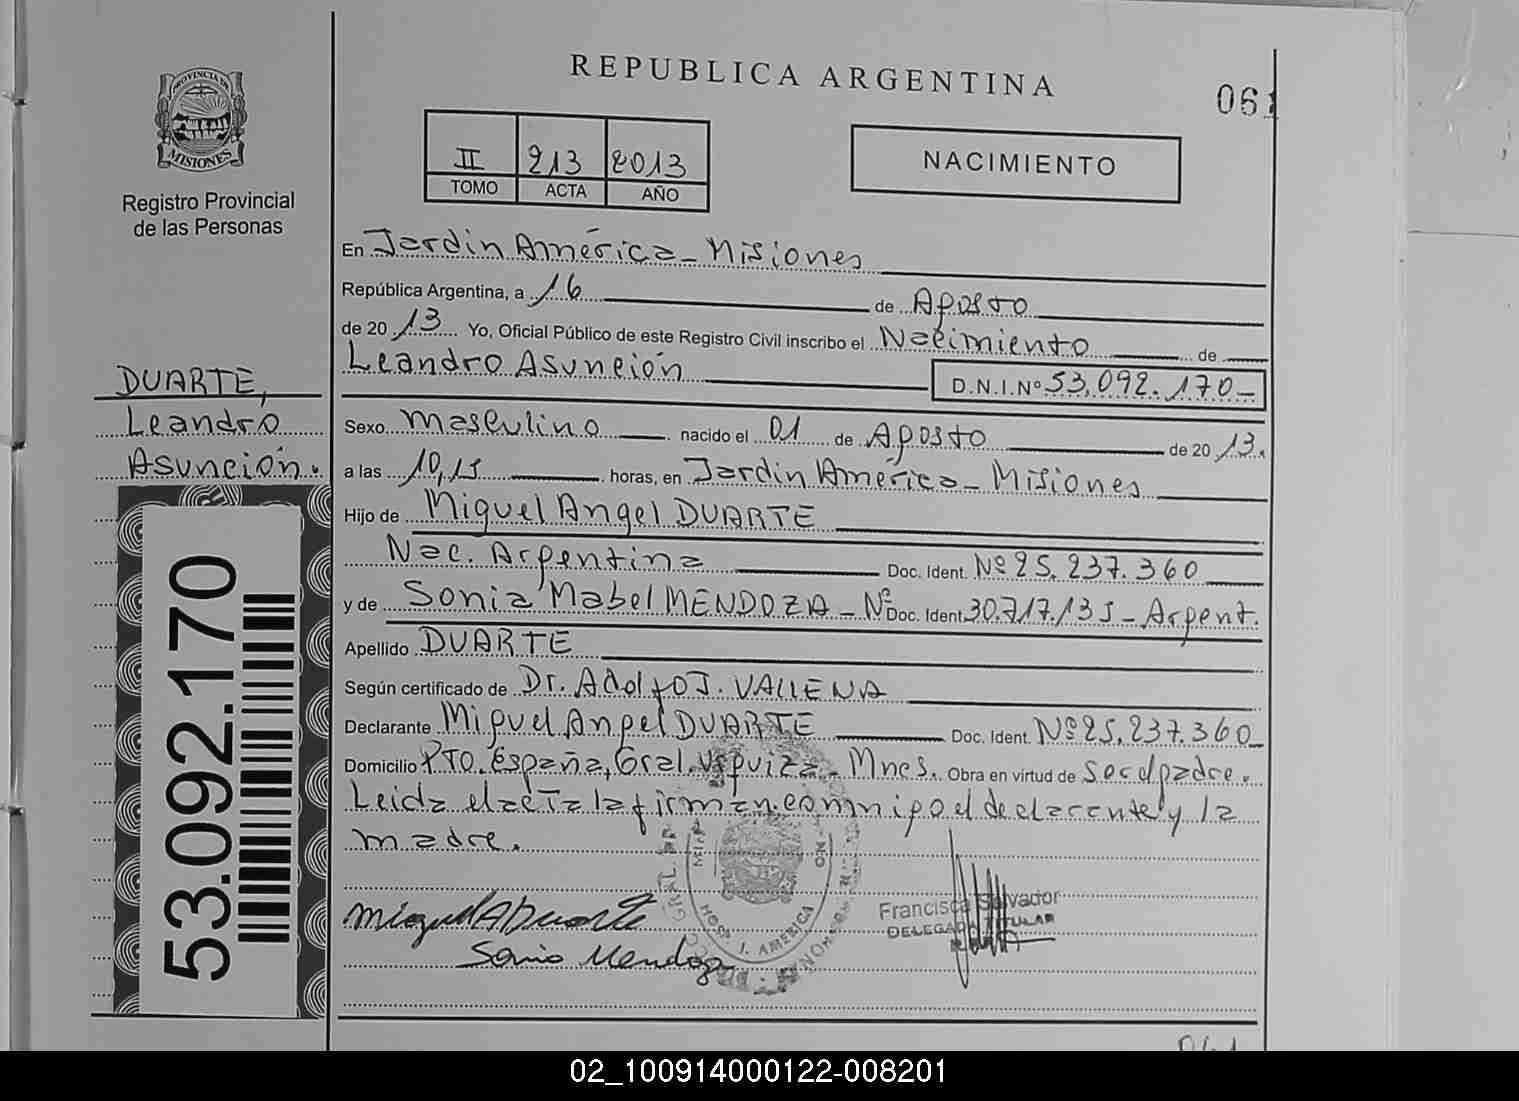 REPUBLICA ARGENTINA
061
PROVINCIA DE MISIONES
Registro Provincial
de las Personas
II 213 2013
TOMO ACTA AÑO
NACIMIENTO
En Jardin América - Misiones
República Argentina, a 16 de Agosto
de 2013 Yo, Oficial Público de este Registro Civil inscribo el Nacimiento de
Leandro Asunción D.N.I.Nº 53.092.170-
DUARTE,
Leandro
Asunción.
Sexo masculino nacido el 01 de Agosto de 2013.
a las 10,15 horas, en Jardin América - Misiones
Hijo de Miguel Angel DUARTE
Nac. Argentina Doc. Ident. Nº 25.237.360
y de Sonia Mabel MENDOZA - Nº Doc. Ident. 30.717.135 - Argent.
Apellido DUARTE
Según certificado de Dr. Adolfo J. VALLENA
Declarante Miguel Angel DUARTE Doc. Ident. Nº 25.237.360
Domicilio Pto. España, Gral. Urquiza - Mnes. Obra en virtud de ser el padre.
Leida el acta la firman conmigo el declarante y la
madre.
53.092.170
Miguel A Duarte
Sonia Mendoza
HOSP. J. AMERICA
Francisca Salvador
DELEGADO TITULAR
02_100914000122-008201